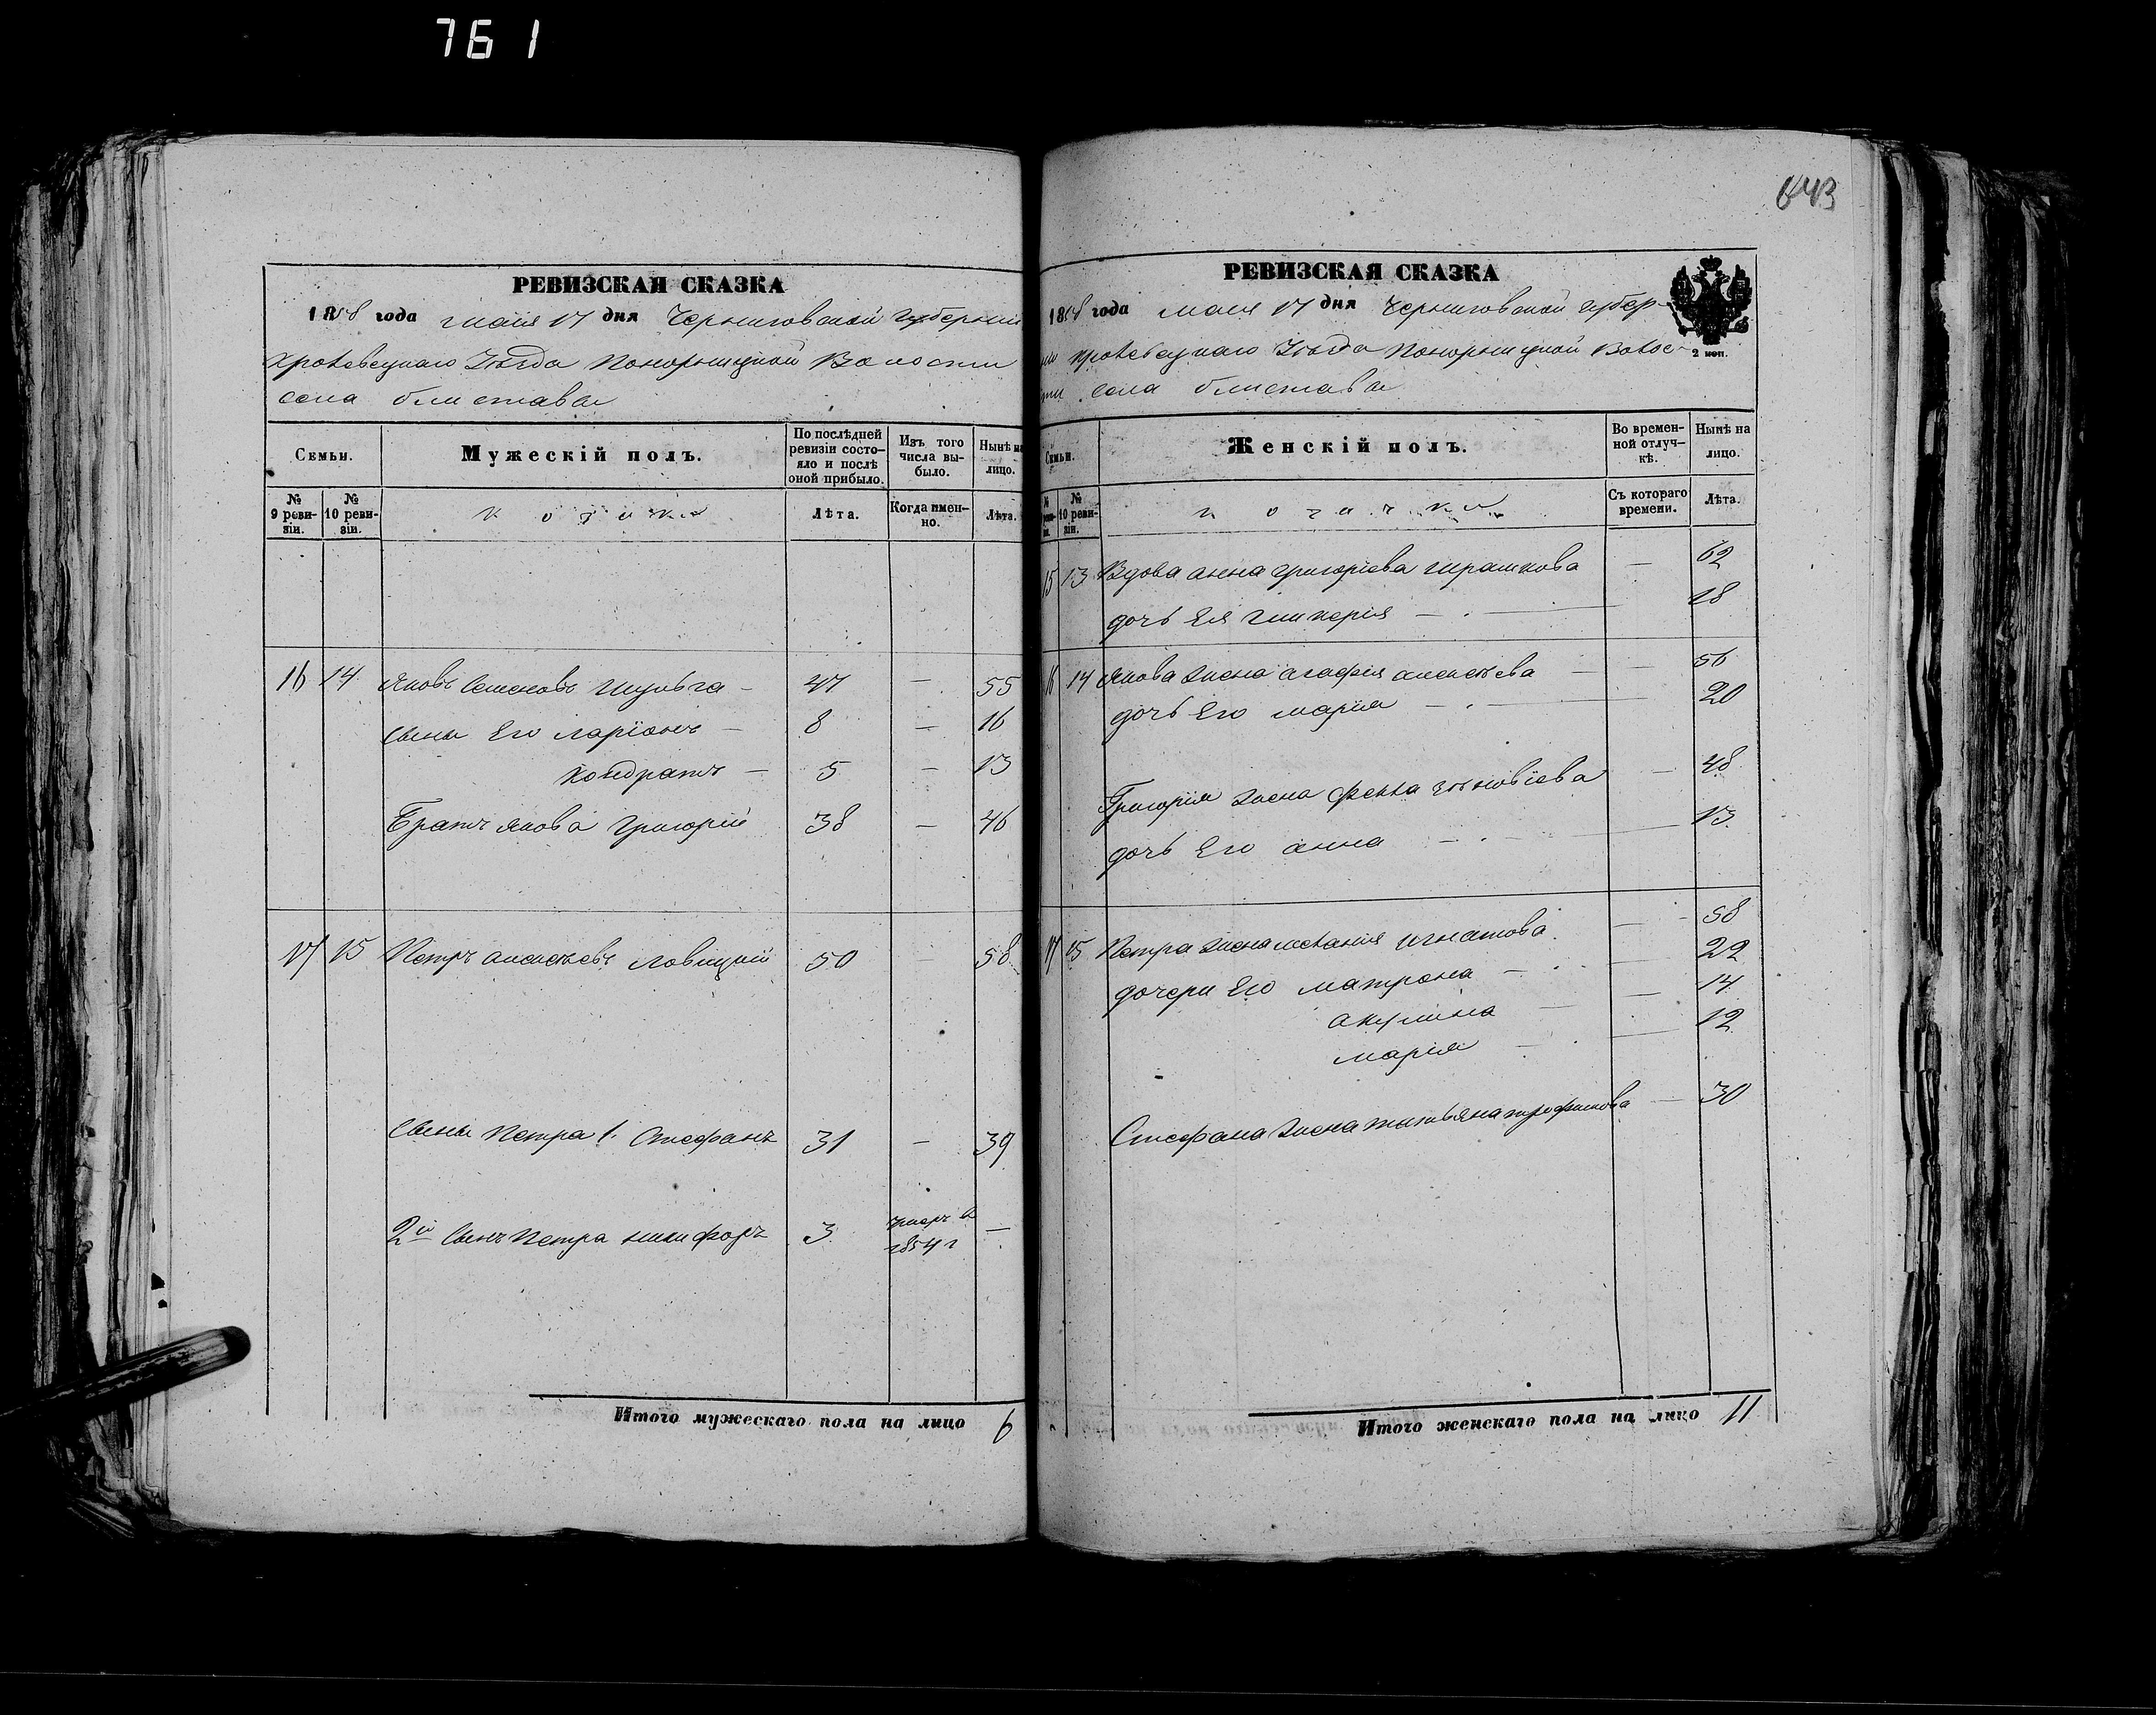 761
643
РЕВИЗСКАЯ СКАЗКА
1858 года маія 17 дня Черниговской губерніи
Кролевецкаго Уѣзда Понорницкой Волости
села блистава
Семьи.
Мужескій полъ.
По послѣдней ревизіи состояло и послѣ оной прибыло.
Изъ того числа выбыло.
Нынѣ на лицо.
№ 9 ревизіи.
№ 10 ревизіи.
козаки
Лѣта.
Когда именно.
Лѣта.
16 14 Яковъ Семеновъ Шульга — 47 — 55
Сыны Его ларіонъ — 8 — 16
кондратъ — 5 — 13
Братъ Якова григорій 38 — 46
17 15 Петръ алексѣевъ Ловицкій 50 — 58
Сыны Петра 1. Стефанъ 31 — 39
2й Сынъ Петра никифоръ 3 умеръ в 1854 г —
Итого мужескаго пола на лицо 6
РЕВИЗСКАЯ СКАЗКА
1858 года маія 17 дня Черниговской губер-
ніи кролевецкаго Уѣзда Понорницкой Волос-
ти села блистава
2 коп.
Семьи.
Женскій полъ.
Во временной отлучкѣ.
Нынѣ на лицо.
№ 10 ревизіи.
козачки
Съ котораго времени.
Лѣта.
15 13 Вдова анна григоріева — 62
дочь Ея гликерія — 18
16 14 Якова жена агафія алексѣева — 56
дочь Его марія — 20
Григорія жена Фекла — 48
дочь Его анна — 13
17 15 Петра жена меланія игнатова — 58
дочери Его матрона — 22
акулина — 14
марія — 12
Стефана жена татьяна трофимова — 30
Итого женскаго пола на лицо 11